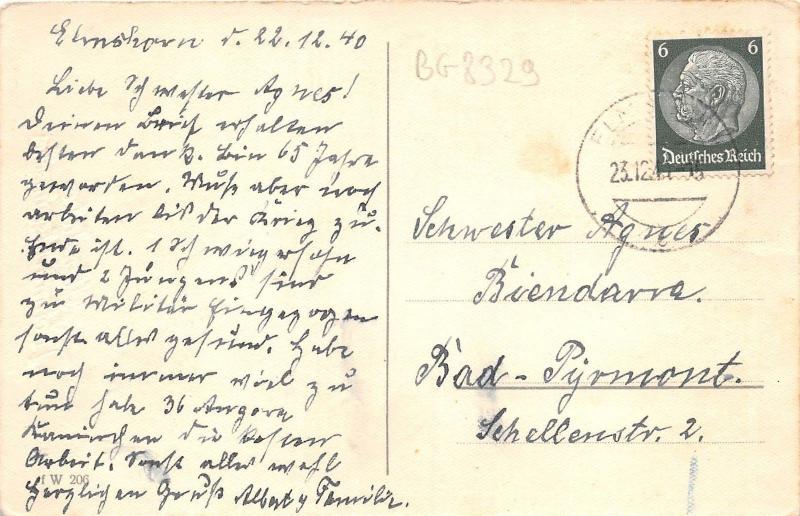 Elmshorn d. 22.12.40
Liebe Schwester Agnes!
Deinen Brief erhalten
besten Dank. bin 65 Jahre
geworden. Muß aber noch
arbeiten bis der Krieg zu.
Ende ist. 1 Schwiegersohn
und 2 Jungens sind
zu Militär Eingezogen
sonst alles gesund. Habe
noch immer viel zu
tun habe 36 Angora
Kaninchen die kosten
Arbeit. Sonst alles wohl
Herzlichen Gruß Albat u Familie.
f W 206
BG 8329
6 6
Deutsches Reich
23.12.
Schwester Agnes
Biendarra.
Bad-Pyrmont.
Schellenstr. 2.